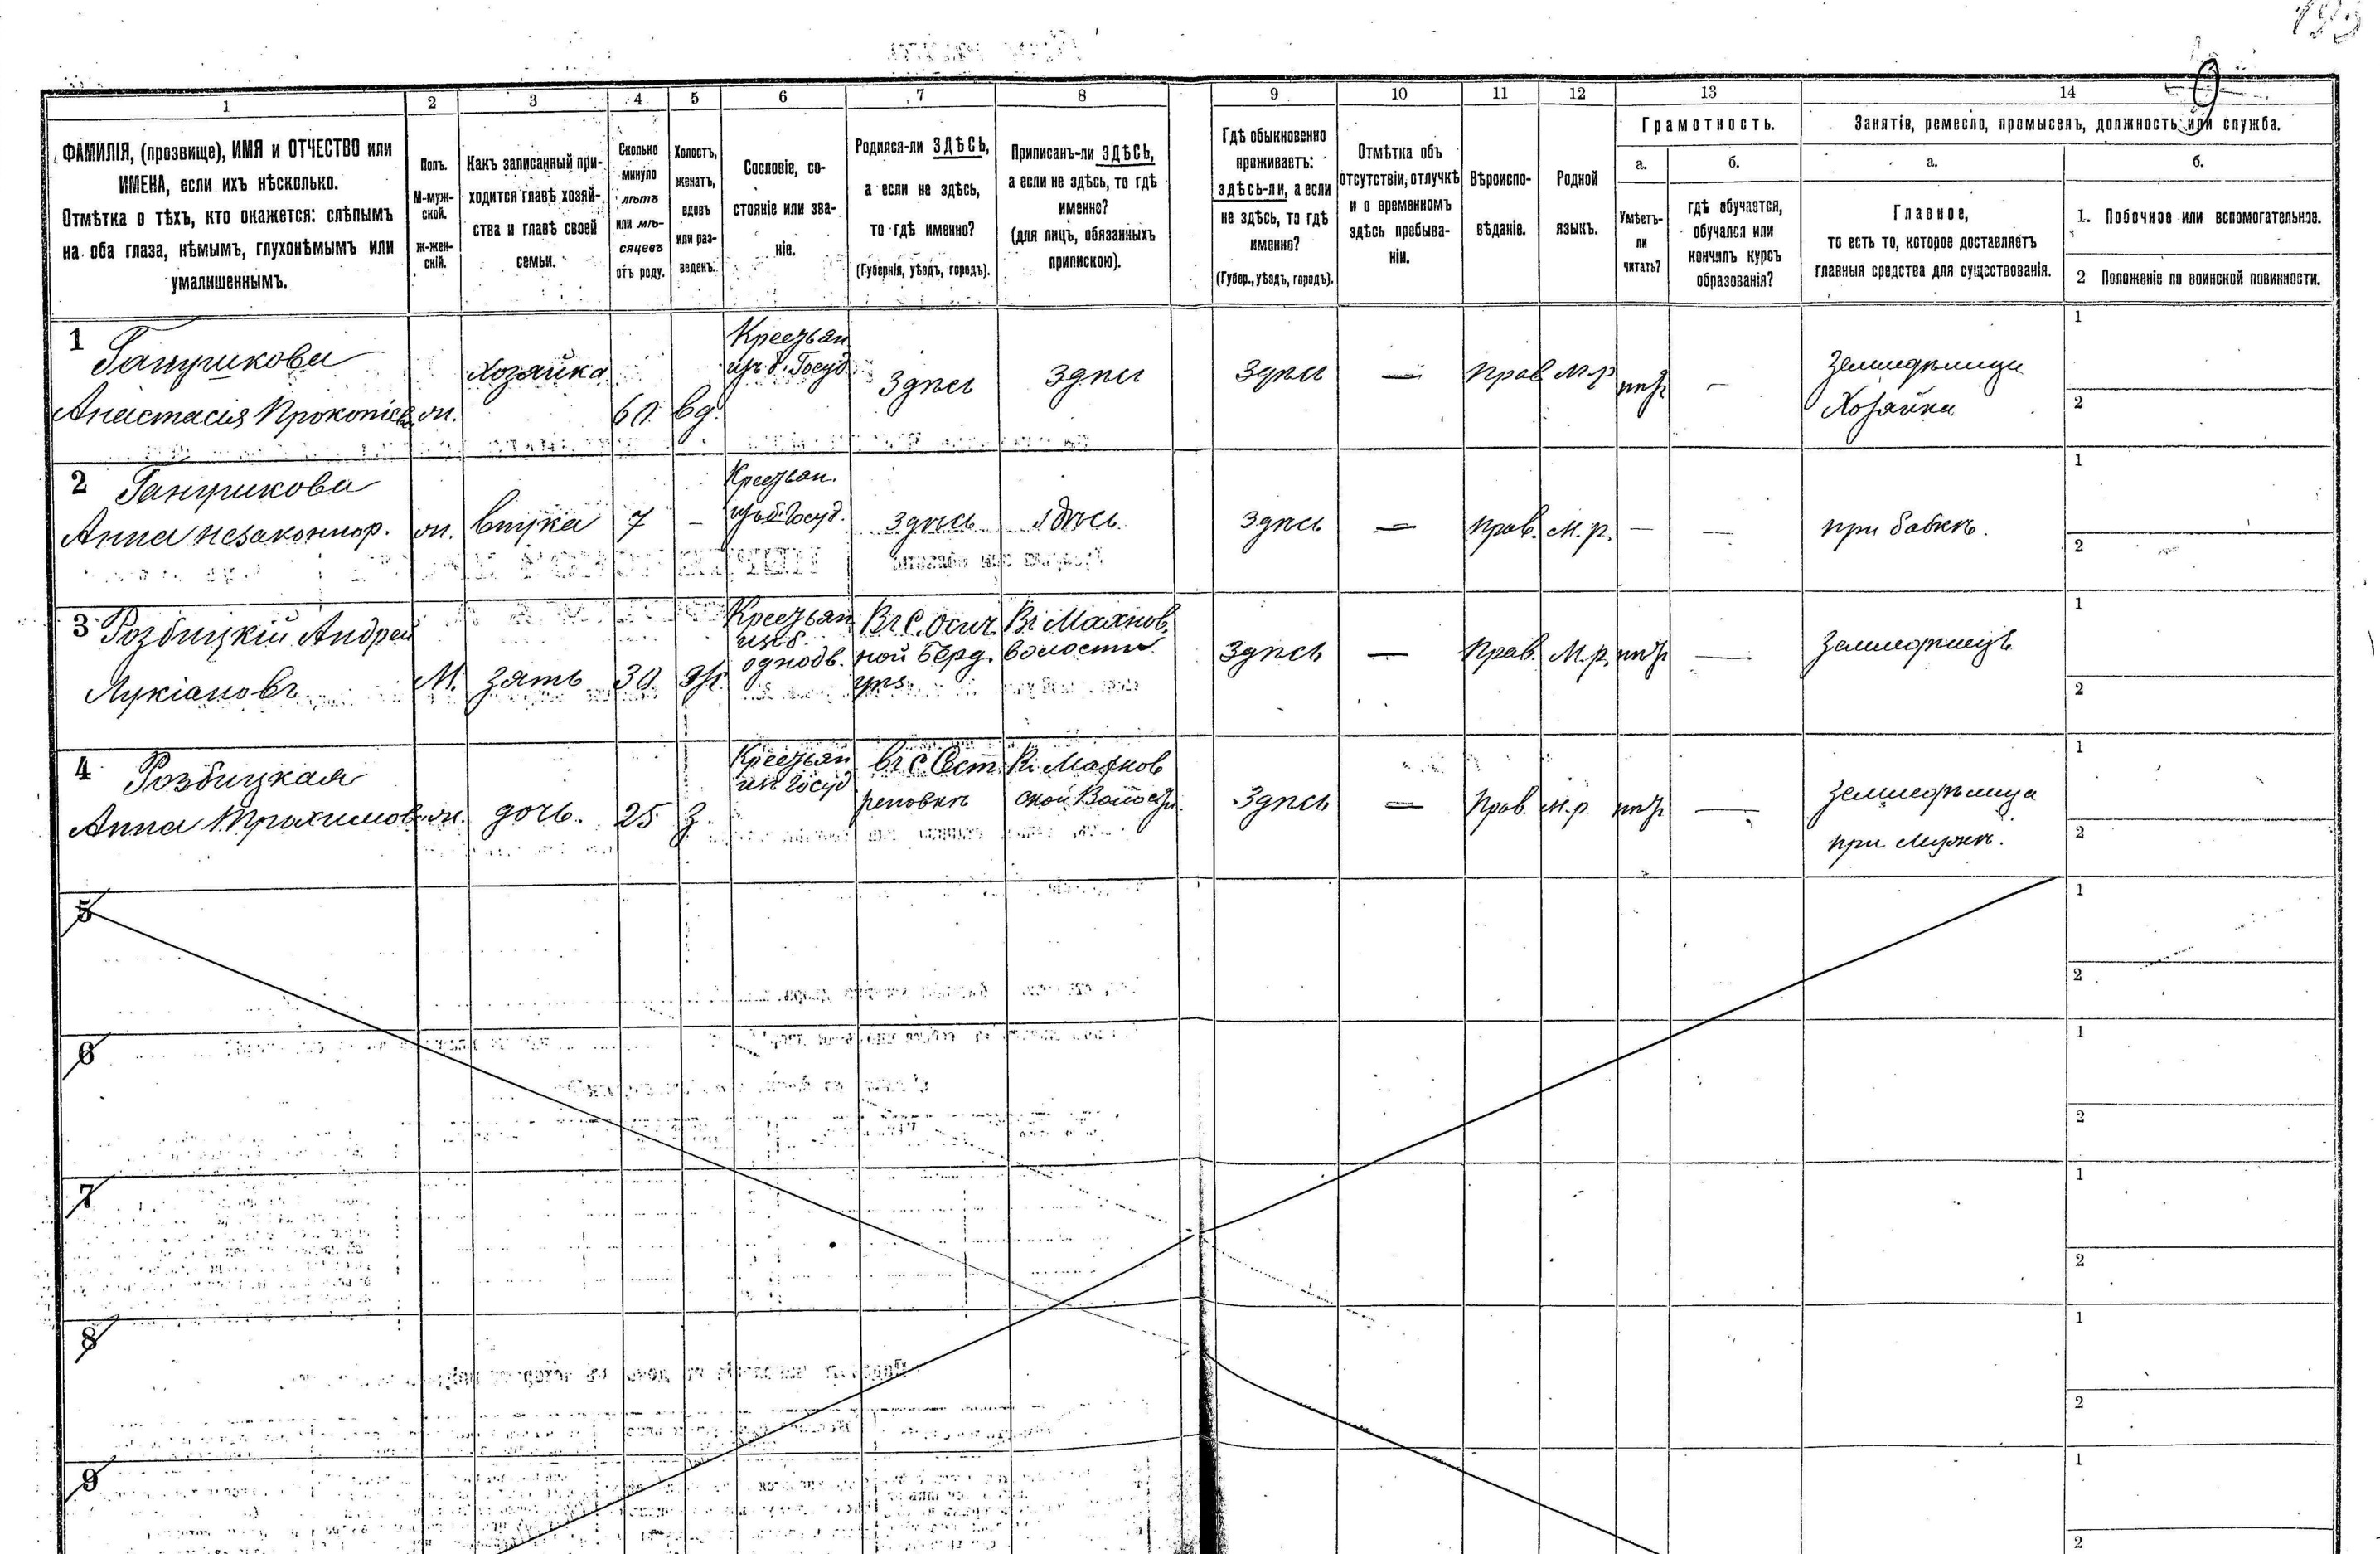 193
9
1
2
3
4
5
6
7
8
9
10
11
12
13
14
ФАМИЛІЯ, (прозвище), ИМЯ и ОТЧЕСТВО или
ИМЕНА, если ихъ нѣсколько.
Отмѣтка о тѣхъ, кто окажется: слѣпымъ
на оба глаза, нѣмымъ, глухонѣмымъ или
умалишеннымъ.
Полъ.
М-муж-
ской.
ж-жен-
скій.
Какъ записанный при-
ходится главѣ хозяй-
ства и главѣ своей
семьи.
Сколько
минуло
лѣтъ
или мѣ-
сяцевъ
отъ роду.
Холостъ,
женатъ,
вдовъ
или раз-
веденъ.
Сословіе, со-
стояніе или зва-
ніе.
Родился-ли ЗДѢСЬ,
а если не здѣсь,
то гдѣ именно?
(Губернія, уѣздъ, городъ).
Приписанъ-ли ЗДѢСЬ,
а если не здѣсь, то гдѣ
именно?
(для лицъ, обязанныхъ
припискою).
Гдѣ обыкновенно
проживаетъ:
здѣсь-ли, а если
не здѣсь, то гдѣ
именно?
(Губер., уѣздъ, городъ).
Отмѣтка объ
отсутствіи, отлучкѣ
и о временномъ
здѣсь пребыва-
ніи.
Вѣроиспо-
вѣданіе.
Родной
языкъ.
Грамотность.
а.
Умѣетъ-
ли
читать?
б.
гдѣ обучается,
обучался или
кончилъ курсъ
образованія?
Занятіе, ремесло, промыселъ, должность или служба.
а.
Главное,
то есть то, которое доставляетъ
главныя средства для существованія.
б.
1. Побочное или вспомогательное.
2 Положеніе по воинской повинности.
1
Ганушкова
Анастасія Прокопіева
ж.
Хозяйка
60
вд.
Крестьян
изъ б. Госуд
Здѣсь
Здѣсь
Здѣсь
—
Прав
М.р
нѣт
—
Земледѣлица
Хозяйка
1
2
2
Ганушкова
Анна незаконнор.
ж.
внука
7
—
Крестьян.
изъ б. Госуд.
здѣсь
здѣсь
здѣсь
—
прав.
м.р.
—
—
при бабкѣ.
1
2
3
Розбицкій Андрей
Лукіановъ
М.
зять
30
ж.
Крестьян
изъ б.
однодв.
Въ С. Осич.
ной Берд.
уѣз.
Въ Махнов.
волости
здѣсь
—
Прав.
М.р.
нѣт
—
Земледѣлецъ
1
2
4
Розбицкая
Анна Трохимов.
ж.
дочь.
25
з.
Крестьян
изъ Госуд
въ С Ост
реповкѣ
Въ Махнов
ской Волости.
Здѣсь
—
Прав.
м.р.
нѣт
—
Земледѣлица
при мужѣ.
1
2
5
1
2
6
1
2
7
1
2
8
1
2
9
1
2